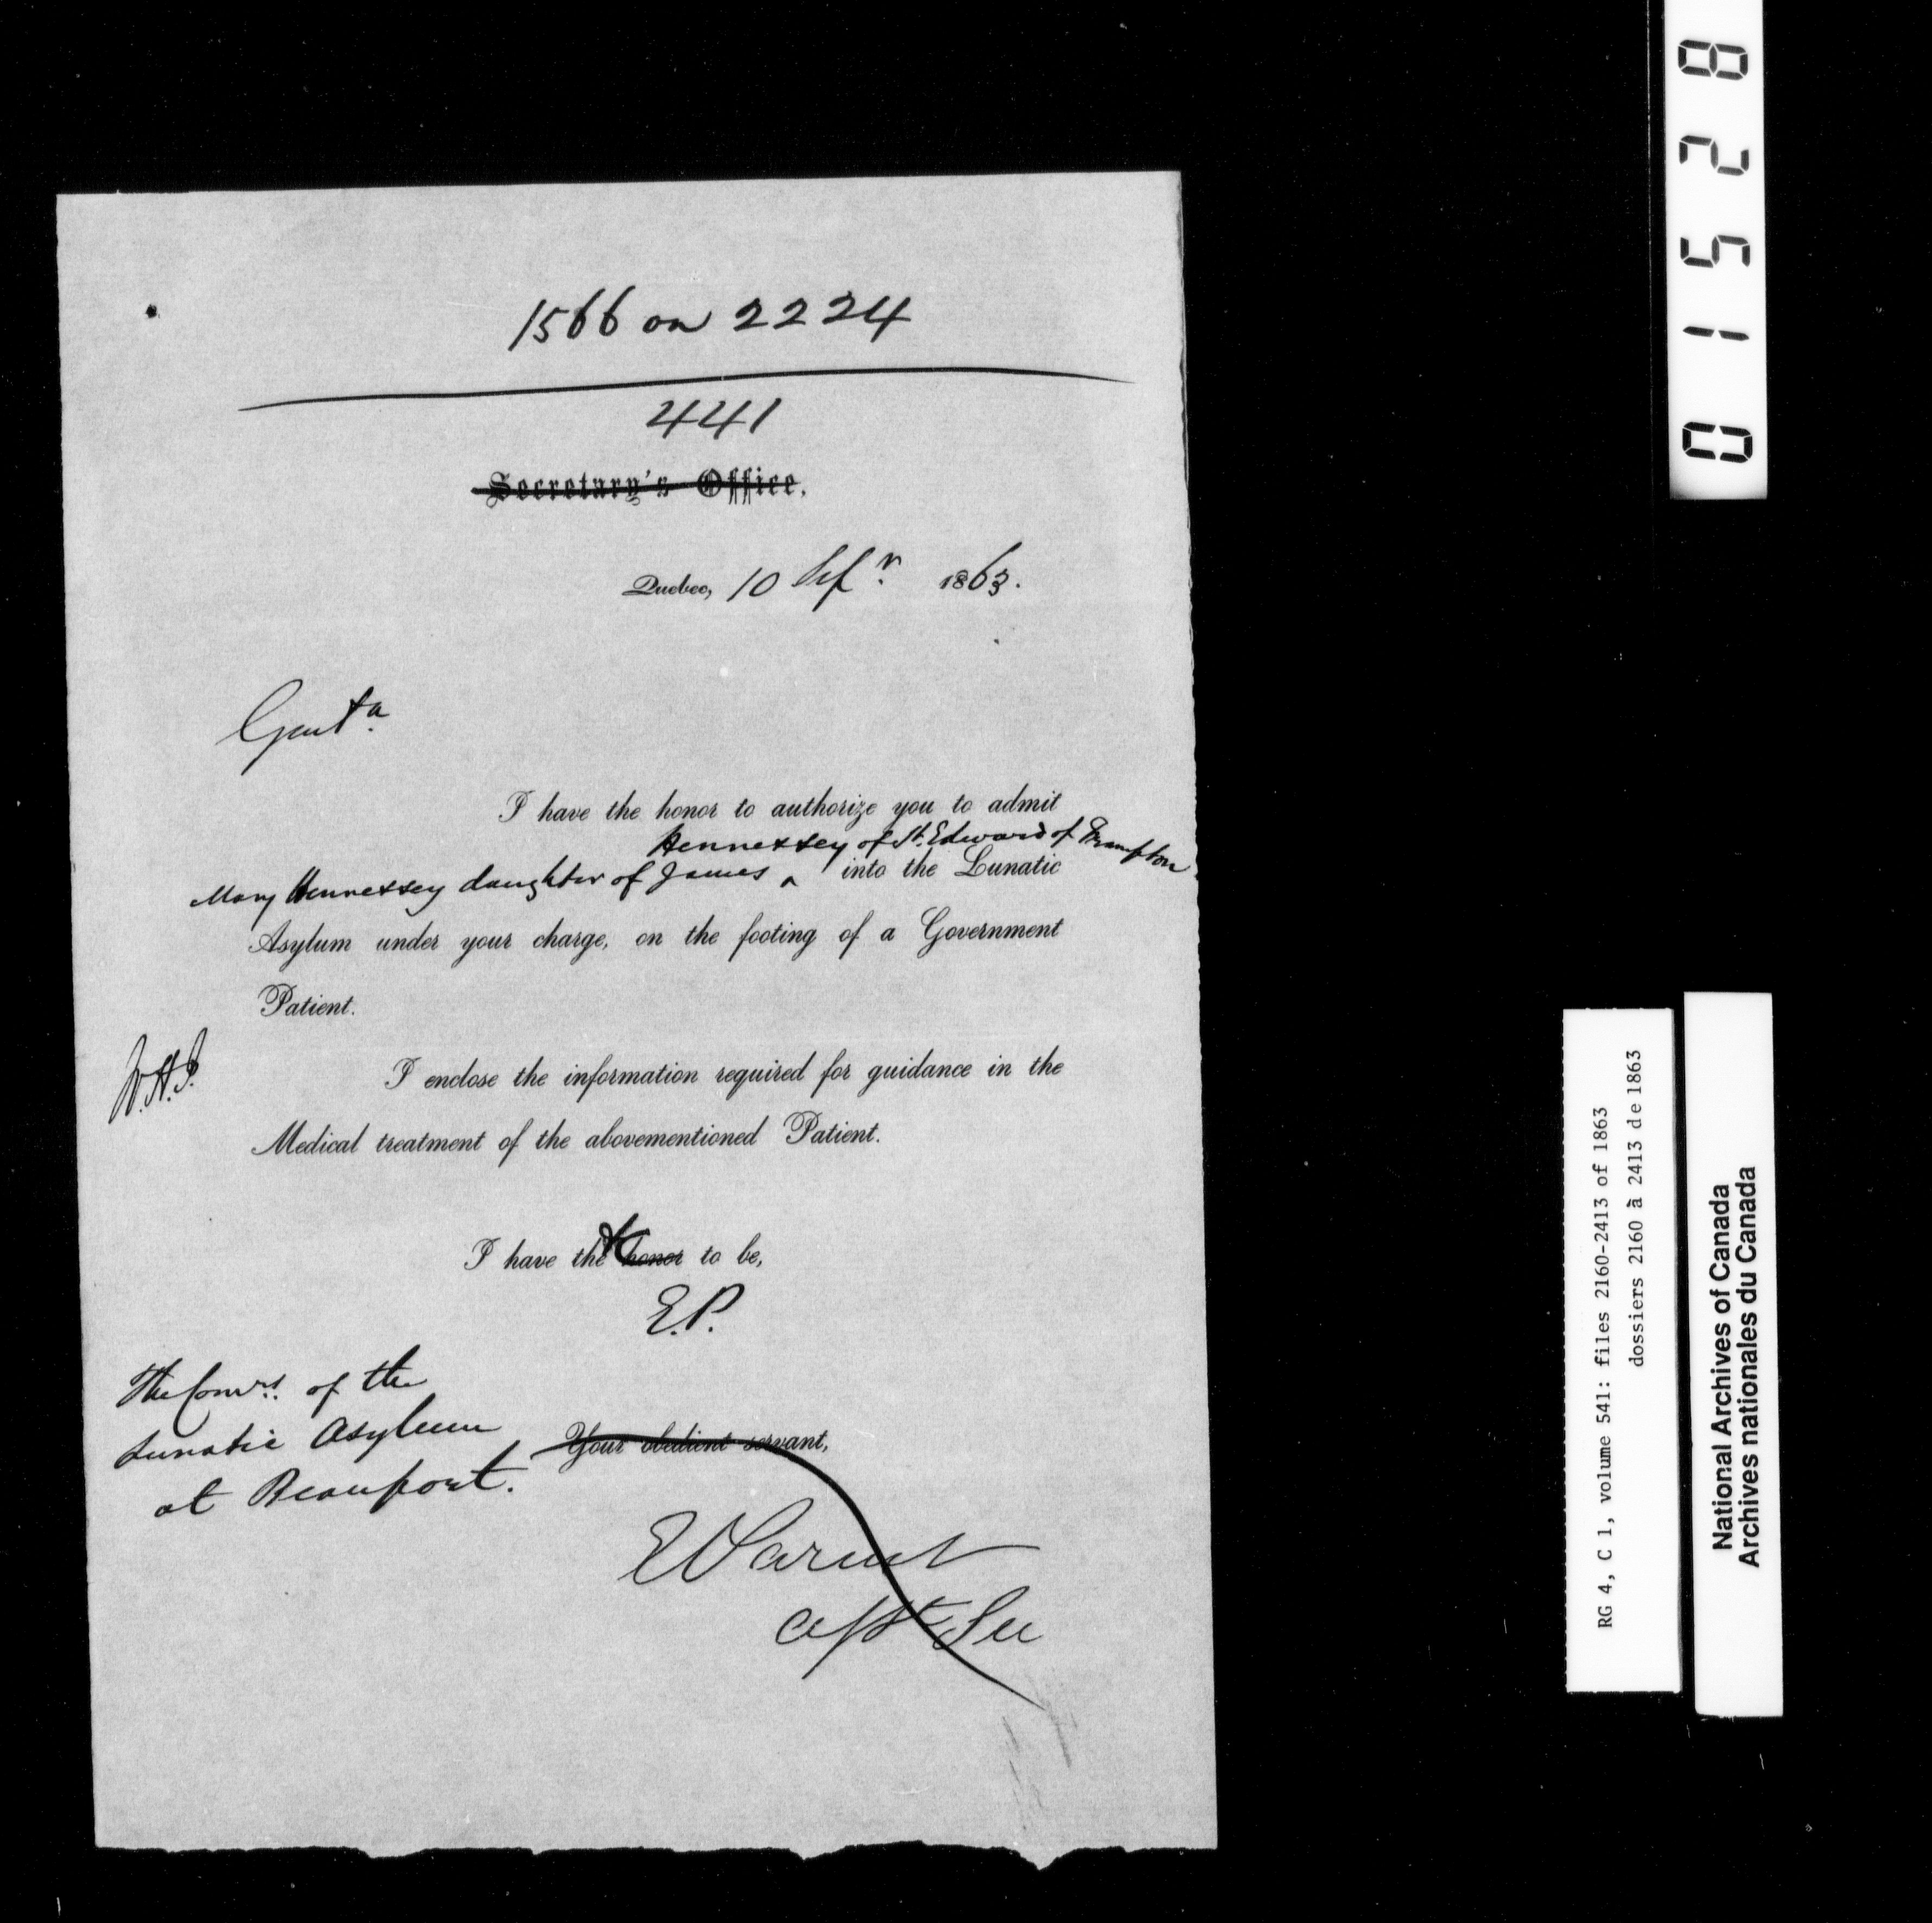 1566 on 2224
441
Secretary's Office.
Quebec, 10 Sepr. 1863.
Gentn.
I have the honor to authorize you to admit
Hennessey of St. Edward of Frampton
Mary Hennessey daughter of James ‸ into the Lunatic
Asylum under your charge, on the footing of a Government
Patient.
I enclose the information required for guidance in the
Medical treatment of the abovementioned Patient.
I have the honor to be,
E.P.
The Comrs. of the
Lunatic Asylum
at Beauport.
Your obedient servant,
E Parent
Asst Sec
01528
RG 4, C 1, volume 541: files 2160-2413 of 1863
dossiers 2160 à 2413 de 1863
National Archives of Canada
Archives nationales du Canada